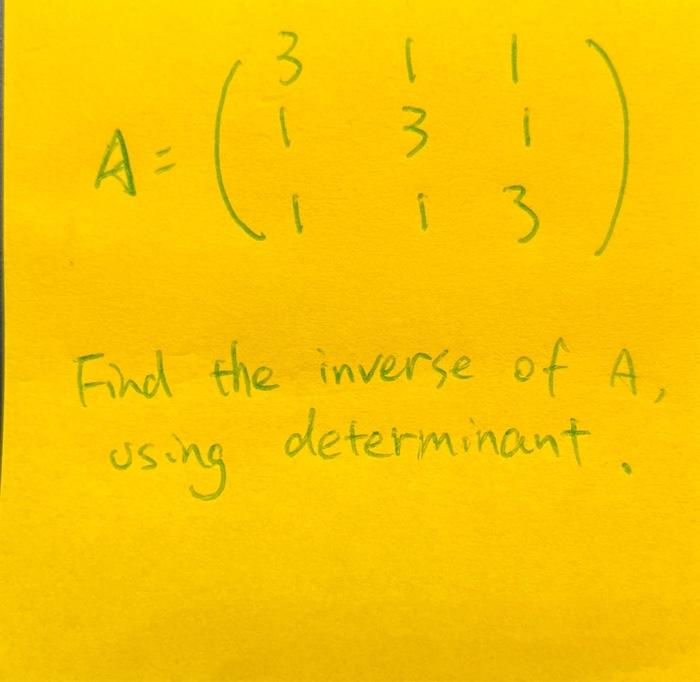 3 1 1
A = ( 1 3 1 )
1 1 3
Find the inverse of A,
using determinant.